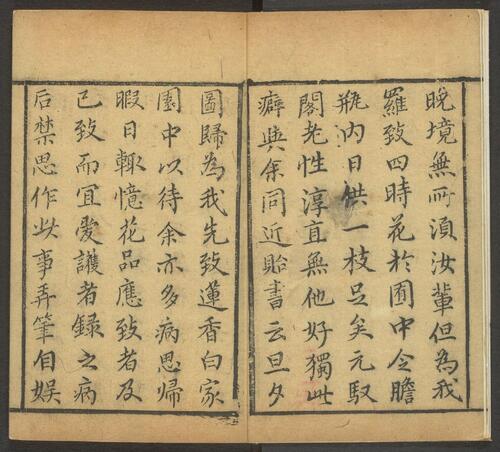 晚境無所湏汝軰但為我
羅致四時花於囿中令膽
瓶内日供一枝足矣元馭
閣老性淳直無他好獨此
癖與余同近貽書云旦夕
圖歸為我先致蓮香白家
園中以待余亦多病思歸
暇日輙憶花品應致者及
已致而冝愛護者録之病
后禁思作此事弄筆自娱